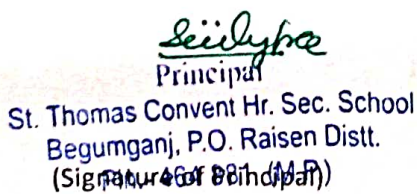 Principal
St. Thomas Convent Hr. Sec. School
Begumganj, P.O. Raisen Distt.
(Signature of Principal)